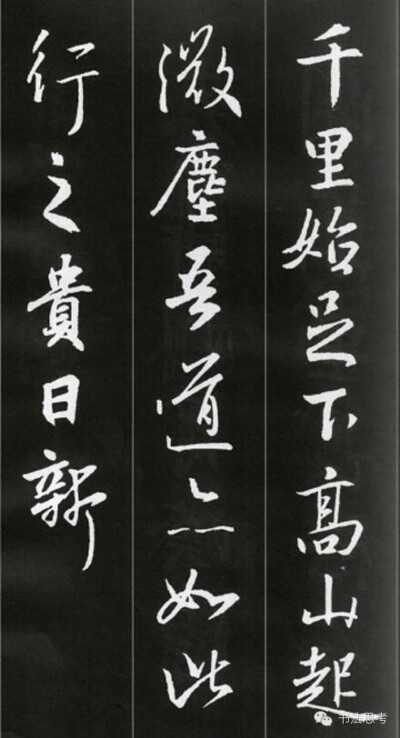 千里始足下高山起
微塵吾道亦如此
行之貴日新
书法思考